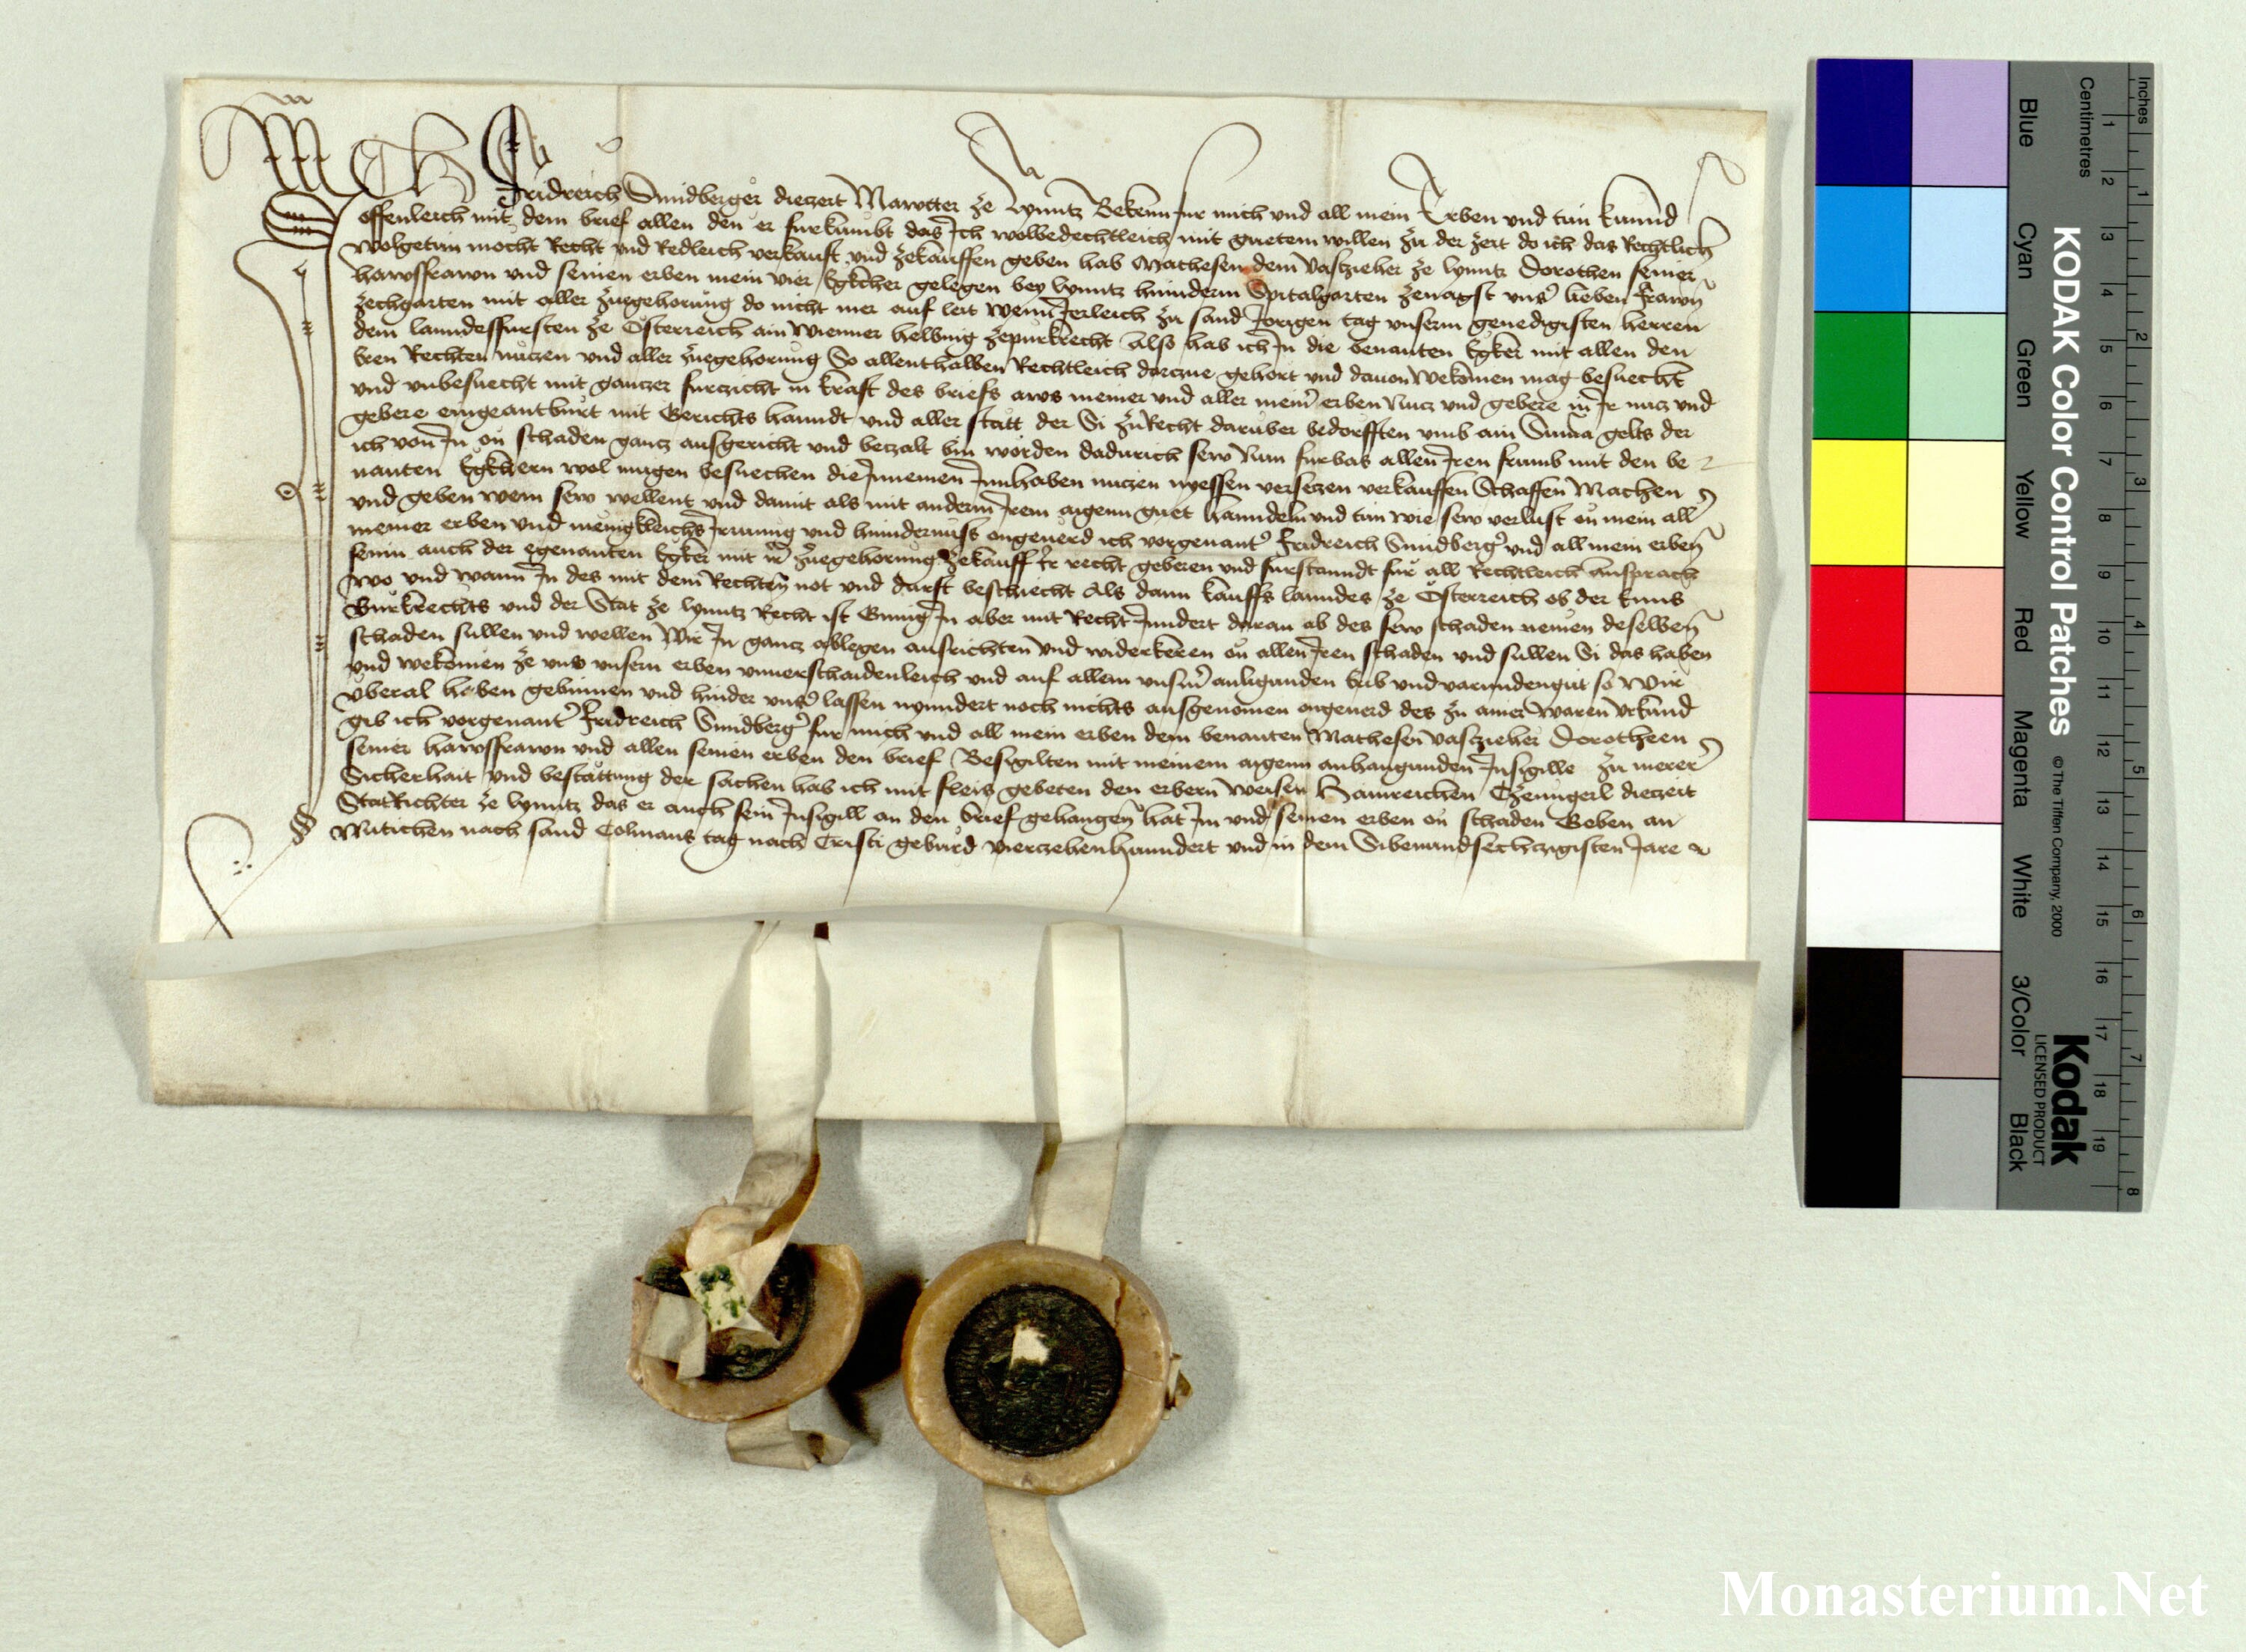 Ich Fridreich Smidberger dieczeit Mawtter ze Lynntz Bekenn fur mich und all mein Erben und tun kunnd
offenleich mit dem brief allen den er furkumbt das Ich wolbedechtleich mit guetem willen zu der zeit do ich das Rechtlich
wolgetun mocht Recht und Redleich verkauft und zekauffen geben hab Mathesen dem Vaszieher ze lynntz Dorothen seiner
hawsfrawn und seinen erben mein vier Egkcher gelegen bey lynntz hinnderm Spitalgarten zenagst uns lieben frawn
zechgarten mit aller zuegehorung do nicht mer auf leit wenn Jerleich zu sand Jorigen tag unserm genedigisten herren
dem lanndesfursten ze Osterreich ain Wienner helbing zepurkrecht Also hab ich In die benanten Egker mit allen den
eren Rechten nuczen und aller zuegehorung So allenthalben Rechtleich darczue gehort und dauon bekomen mag besuecht
und unbesuecht mit ganczer furczicht in kraft des briefs aws meiner und aller meinr erben Nucz und gebere in Ir nucz und
gebere eingeantburt mit Gerichts hanndt und aller statt der Si zu Recht daruber bedorfften umb ain Suma gelts der
ich von In on schaden gancz ausgericht und beczalt bin worden dadurich sew Nun furbas allen Iren frumb mit den be
nanten Egkhern wol mugen besuechen die Innemen Innhaben nuczen nyessen verseczen verkauffen Schaffen Machen
und geben wem sew wellent und damit als mit anderm Irem aigenn guet hanndeln und tun wie sew verlust on mein all
meiner erben und menigkleichs Irrunng und hinndernuss ongeuerd ich vorgenant Fridreich Smidberg und all mein erben
seinn auch der egenanten Egker mit irr zuegehorung zekauff Ir recht geberen und furstanndt fur all Rechtleich Ansprach
wo und wann In des mit dem Rechten not und durft beschiecht Als dann kauffs lanndes ze Osterreich ob der Enns
Burkrechts und der Stat ze lynntz Recht ist Gienng In aber mit Recht Inndert daran ab des sew schaden nemen deselben
schaden sullen und wellen Wir In gancz ablegen ausrichten und widerkeren on allen Iren schaden und sullen Si das haben
und bekomen ze uns unsern erben unuerschaidenleich und auf allem unserm anligunden Erb und varunden gut so Wir
uberal haben gebinnen und hinder uns lassen nynndert noch nichts ausgenomen ongeuerd des zu ainer Waren Urkund
gib ich vorgenant Fridreich Smidberg fur mich und all mein erben dem benanten Mathesen Vaszieher Dorotheen
seiner hawsfrawn und allen seinen erben den brief Besigilten mit meinem aigenn anhangunden Insigille zu merer
Sicherhait und bestattung der sachen hab ich mit fleis gebeten den erbern Weisen Hainreichen Czeunngerl dieczeit
StatRichter ze lynntz das er auch sein Insigill an den brief gehangen hat Im und seinen erben on schaden Geben an
Mitichen nach sand Colmans tag nach Cristi geburd vierczehenhunndert und in dem Sibenundsechczigisten Jare
KODAK Color Control Patches © The Tiffen Company, 2000 Kodak LICENSED PRODUCT
Blue Cyan Green Yellow Red Magenta White 3/Color Black
Inches 1 2 3 4 5 6 7 8
Centimetres 1 2 3 4 5 6 7 8 9 10 11 12 13 14 15 16 17 18 19
Monasterium.Net